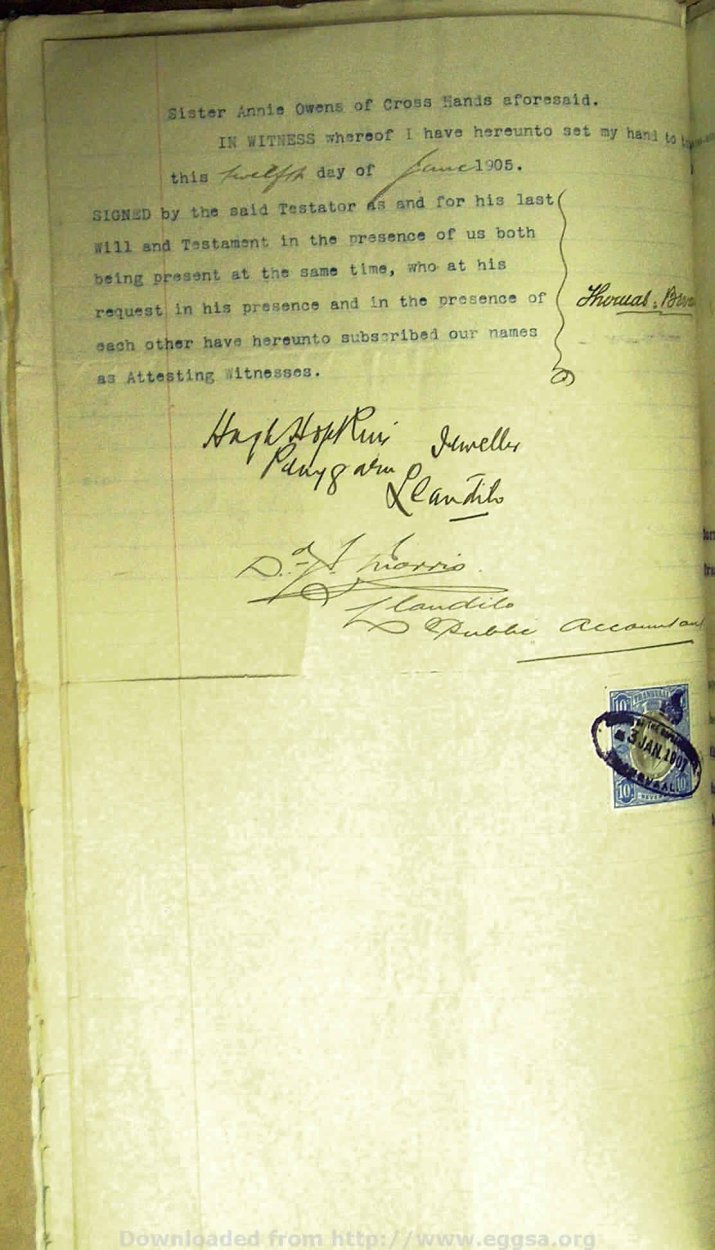 Sister Annie Owens of Cross Hands aforesaid.
IN WITNESS whereof I have hereunto set my hand to
this twelfth day of June 1905.
SIGNED by the said Testator as and for his last
Will and Testament in the presence of us both
being present at the same time, who at his
request in his presence and in the presence of
Thomas
each other have hereunto subscribed our names
as Attesting Witnesses.
Hugh Hopkins Jeweller
Llandilo
D.d J. Morris
Llandilo
Public Accountant
TRANSVAAL
10 10
OF THE
3 JAN. 1907
TRANSVAAL
10 10
Downloaded from http://www.eggsa.org